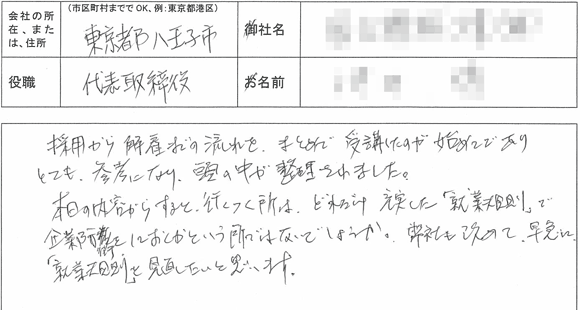 会社の所在、または、住所
(市区町村まででOK、例:東京都港区)
東京都八王子市
御社名
役職
代表取締役
お名前
採用から解雇までの流れを、まとめて受講したのが始めてであり
とても、参考になり、頭の中が整理されました。
本日の内容からすると、行きつく所は、どれだけ充実した「就業規則」で
企業防衛に しておくかという所ではないでしょうか。弊社も改めて、早急に
「就業規則」を見直したいと思います。